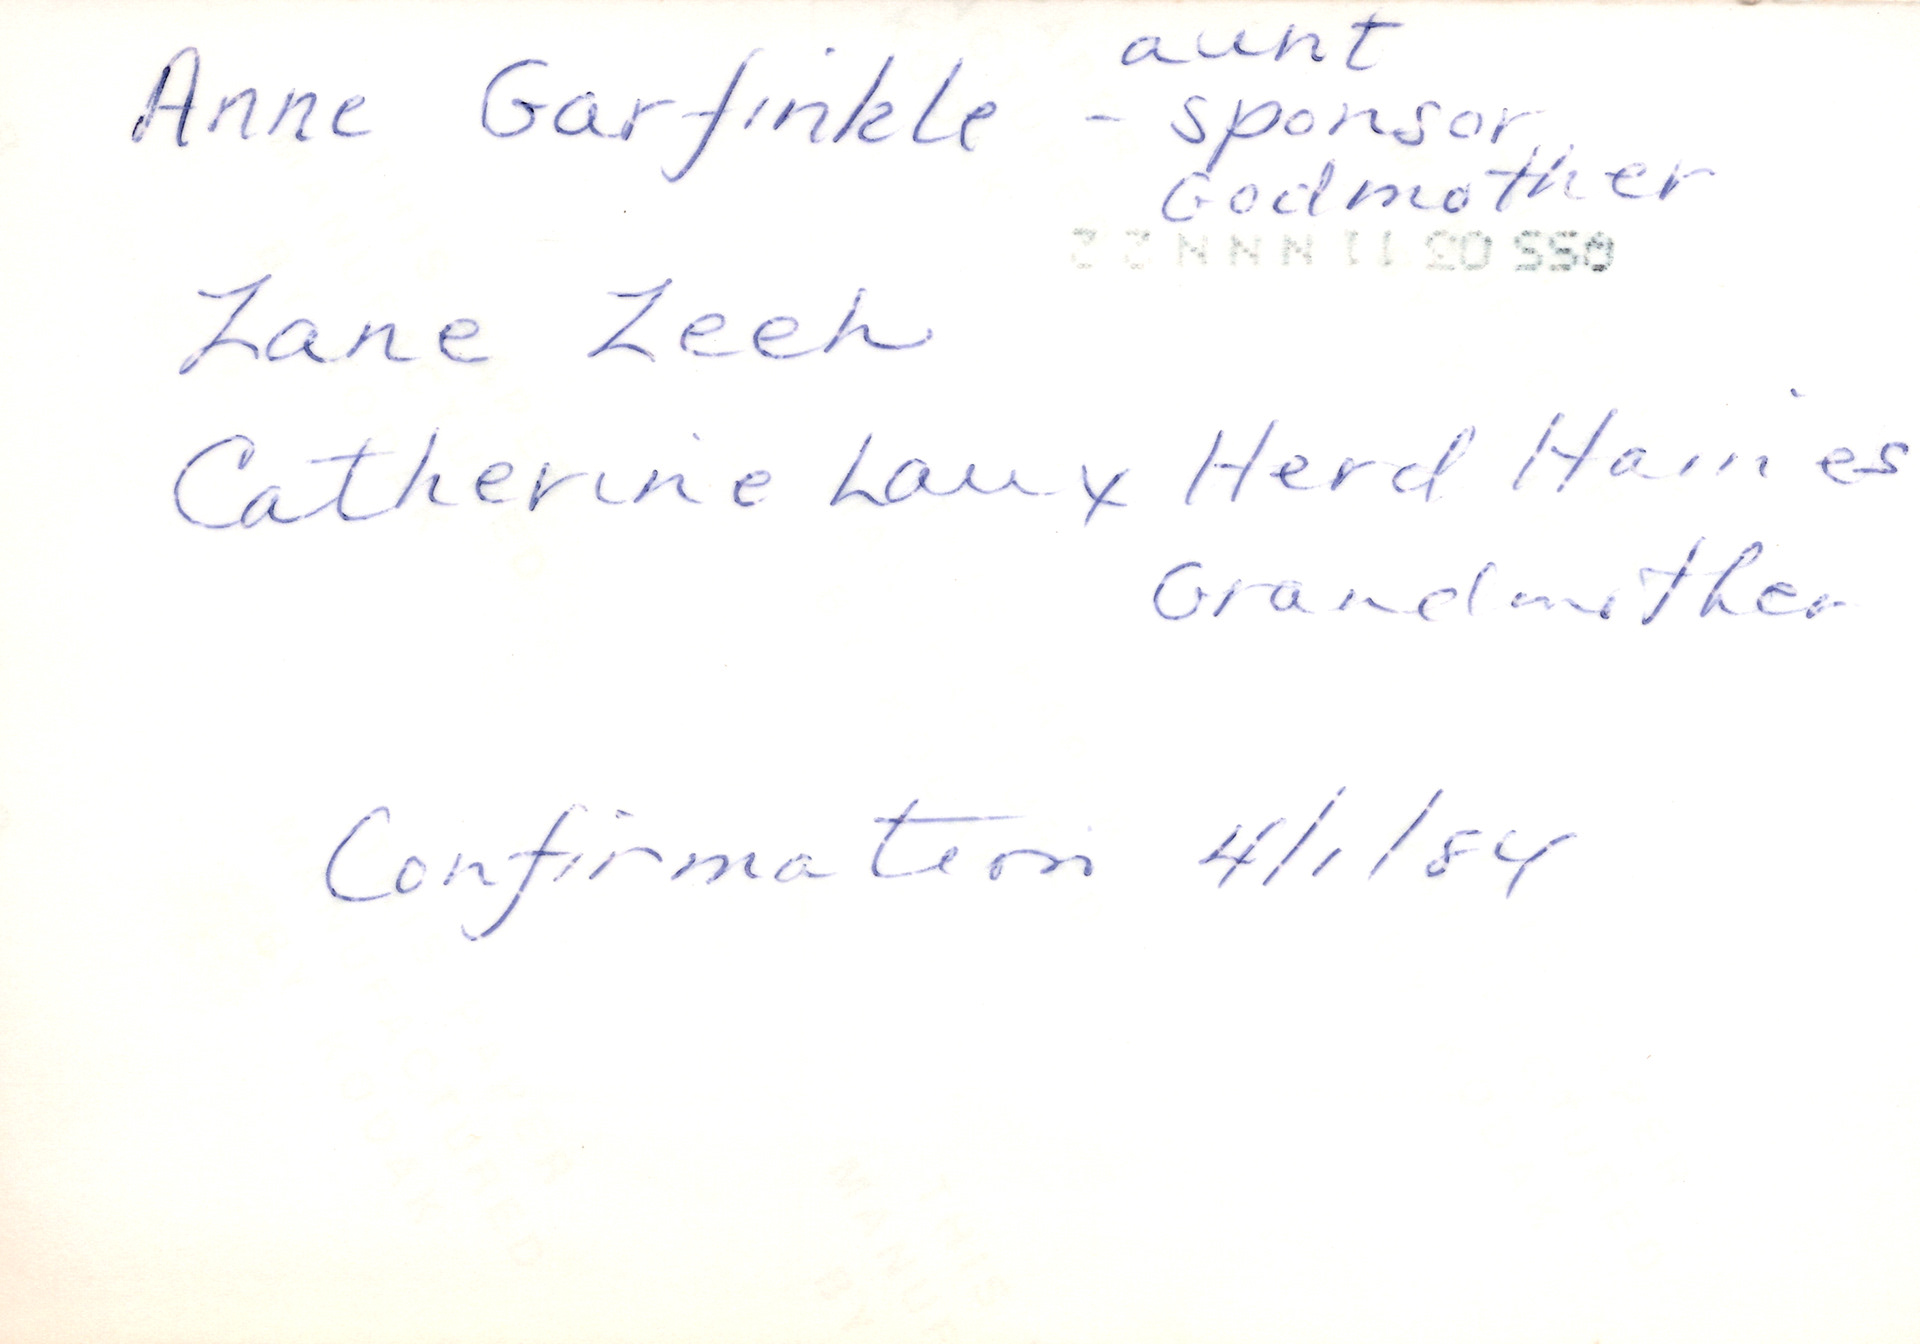 aunt
Anne Garfinkle - sponsor
Godmother
Zane Zeeh
Catherine Laux Herd Haines
Grandmother
Confirmation 4/1/84